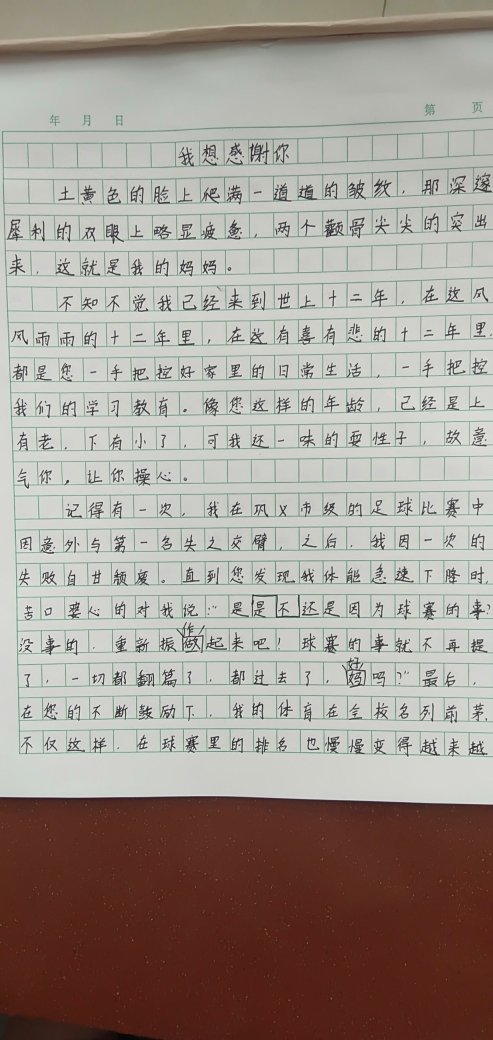 年 月 日
第 页
我想感谢你
土黄色的脸上爬满一道道的皱纹，那深邃
犀利的双眼上略显疲惫，两个颧骨尖尖的突出
来，这就是我的妈妈。
不知不觉我已经来到世上十二年，在这风
风雨雨的十二年里，在这有喜有悲的十二年里，
都是您一手把控好家里的日常生活，一手把控
我们的学习教育。像您这样的年龄，已经是上
有老，下有小了，可我还一味的耍性子，故意
气你，让你操心。
记得有一次，我在巩义市级的足球比赛中
因意外与第一名失之交臂，之后，我因一次的
失败自甘颓废。直到您发现我体能急速下降时，
苦口婆心的对我说：“是是不还是因为球赛的事？
没事的，重新振作起来吧！球赛的事就不再提
了，一切都翻篇了，都过去了，好吗？”最后，
在您的不断鼓励下，我的体育在全校名列前茅，
不仅这样，在球赛里的排名也慢慢变得越来越